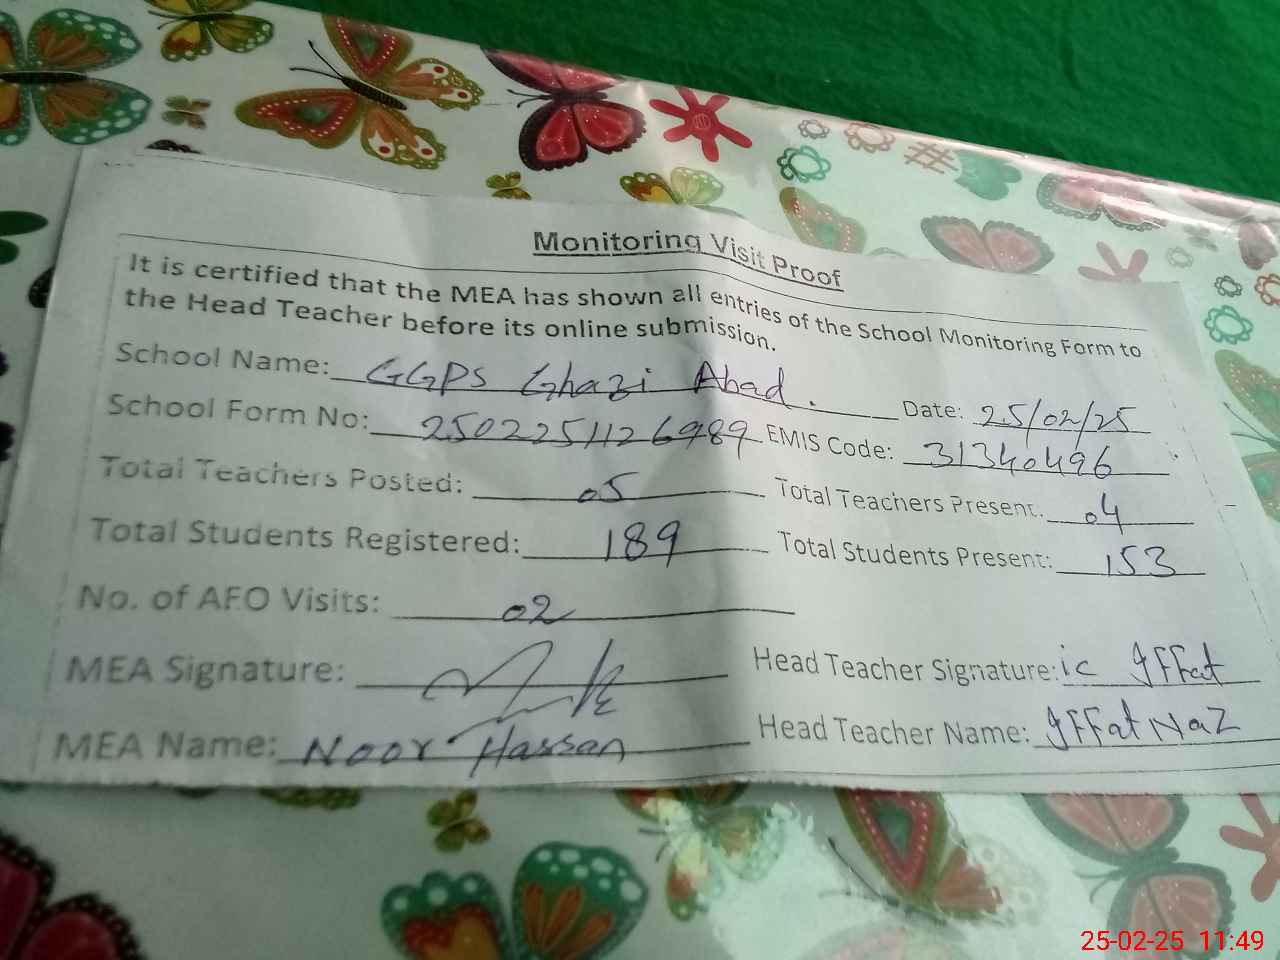 Monitoring Visit Proof
It is certified that the MEA has shown all entries of the School Monitoring Form to
the Head Teacher before its online submission.
School Name: GGPS Ghazi Abad. Date: 25/02/25
School Form No: 2502251126989 EMIS Code: 31340496
Total Teachers Posted: 05 Total Teachers Present: 04
Total Students Registered: 189 Total Students Present: 153
No. of AFO Visits: 02
MEA Signature: Head Teacher Signature: ic Iffat
MEA Name: Noor Hassan Head Teacher Name: Iffat Naz
25-02-25 11:49